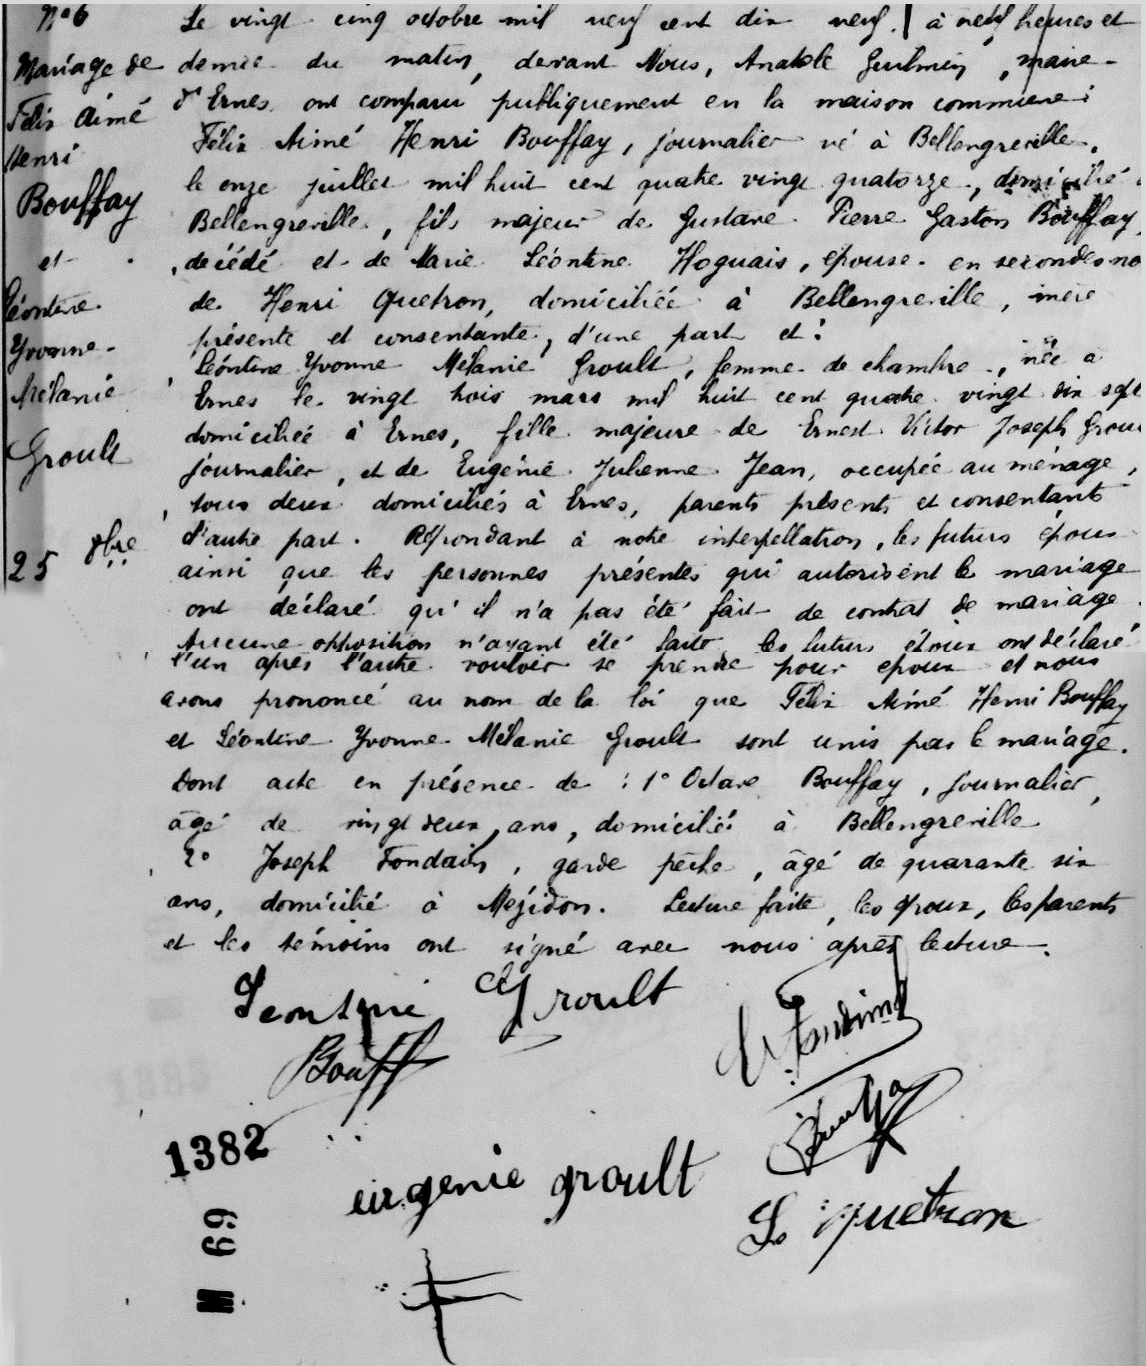 N° 6
Mariage de
Félix Aimé
Henri
Bouffay
et
Léontine
Yvonne
Mélanie
Groult
25 8bre
Le vingt cinq octobre mil neuf cent dix neuf, à neuf heures et
demie du matin, devant Nous, Anatole Guilmin, maire
d'Ernes, ont comparu publiquement en la maison commune :
Félix Aimé Henri Bouffay, journalier né à Bellengreville,
le onze juillet mil huit cent quatre vingt quatorze, domicilié
Bellengreville, fils majeur de Gustave Pierre Gaston Bouffay,
décédé et de Marie Léontine Hoguais, épouse en secondes no
de Henri Quetron, domiciliée à Bellengreville, mère
présente et consentante, d'une part et :
Léontine Yvonne Mélanie Groult, femme de chambre, née à
Ernes le vingt trois mars mil huit cent quatre vingt dix sept
domiciliée à Ernes, fille majeure de Ernest Victor Joseph Grou
journalier, et de Eugénie Julienne Jean, occupée au ménage,
tous deux domiciliés à Ernes, parents présents et consentants
d'autre part. Répondant à notre interpellation, les futurs époux
ainsi que les personnes présentes qui autorisent le mariage
ont déclaré qu'il n'a pas été fait de contrat de mariage.
Aucune opposition n'ayant été faite les futurs époux ont déclaré
l'un après l'autre vouloir se prendre pour époux et nous
avons prononcé au nom de la loi que Félix Aimé Henri Bouffay
et Léontine Yvonne Mélanie Groult sont unis par le mariage.
Dont acte en présence de : 1° Octave Bouffay, journalier,
âgé de vingt deux ans, domicilié à Bellengreville
2° Joseph Fondain, garde pêche, âgé de quarante six
ans, domicilié à Mézidon. Lecture faite, les époux, les parents
et les témoins ont signé avec nous après lecture.
Leontine Groult
Bouff
eugenie groult
L quetron
1382
69
M